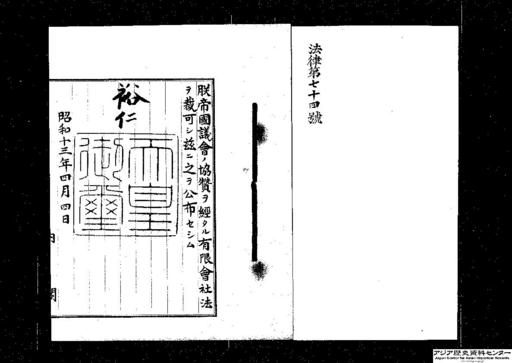 法律第七十四號
朕帝國議會ノ協贊ヲ經タル有限會社法
ヲ裁可シ茲ニ之ヲ公布セシム
裕仁
天皇御璽
昭和十三年四月四日
アジア歴史資料センター
Japan Center for Asian Historical Records